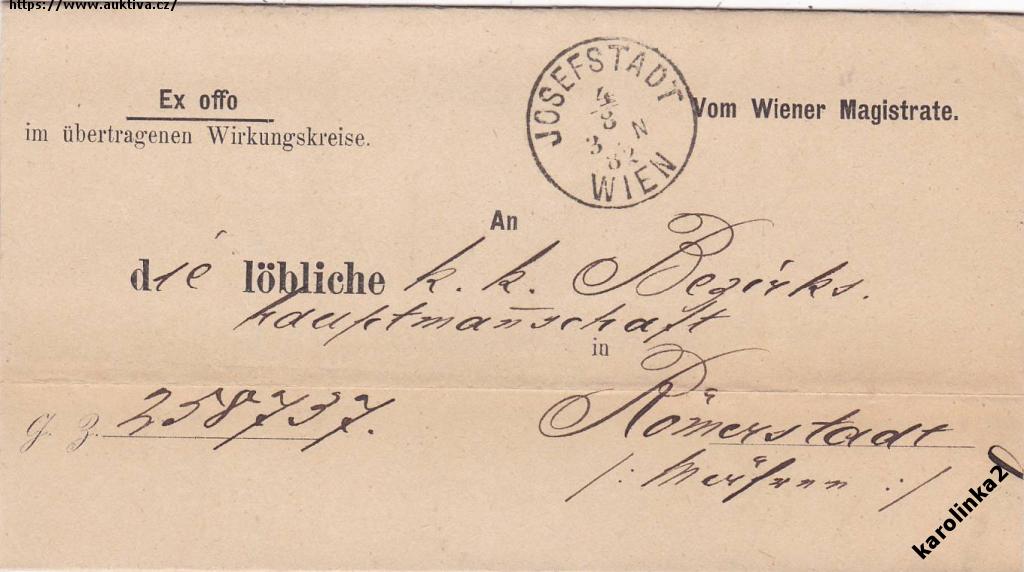 https://www.auktiva.cz/
Ex offo
im übertragenen Wirkungskreise.
JOSEFSTADT
4/8
3 N
82
WIEN
Vom Wiener Magistrate.
An
die löbliche k. k. Bezirks.
hauptmannschaft
in
G. Z. 258737.
Römerstadt
/: Mähren :/
karolinka2